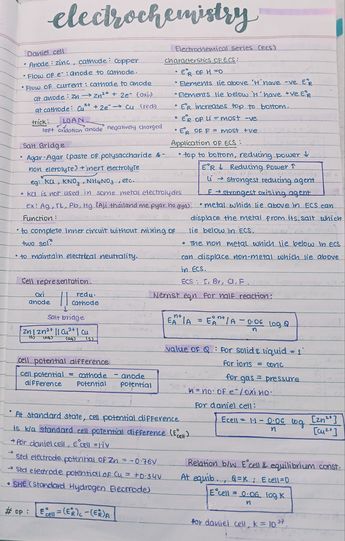 electrochemistry
Daniel cell
• Anode: zinc, cathode: copper
• Flow of e⁻: anode to cathode.
• Flow of current: cathode to anode
at anode: Zn → Zn²⁺ + 2e⁻ (oxi)
at cathode: Cu²⁺ + 2e⁻ → Cu (red)
trick: LOAN
left oxidation anode negatively charged
Salt Bridge
• Agar-Agar (paste of polysaccharide &
non elerolyte) + inert electrolyte
eg: KCl, KNO₃, NH₄NO₃, etc.
• KCl is not used in some metal electrolydes
Ex: Ag, Tl, Pb, Hg (Aji thailand me pyar ho gya)
Function:
• to complete inner circuit without mixing of
two solⁿ
• to maintain electrical neutrality.
Cell representation.
oxi || redu.
anode cathode
Salt bridge
Zn | Zn²⁺ || Cu²⁺ | Cu
(s) (aq) (aq) (s)
cell potential difference
cell potential = cathode - anode
difference Potential potential
• At standard state, cell potential difference
is k/a standard cell potential difference (E°cell)
→ For daniel cell, E°cell = 1.1V
→ Std electrode potential of Zn = -0.76V
→ Std electrode potential of Cu = +0.34V
• SHE (Standard Hydrogen Electrode)
# op: E°cell = (E°R)c - (E°R)A
Electrochemical Series (ECS)
Characteristics of ECS:
• E°R of H = 0
• Elements lie above 'H' have -ve E°R
• Elements lie below 'H' have +ve E°R
• E°R increases top to bottom.
• E°R of Li = most -ve
• E°R of F = most +ve
Application of ECS:
• top to bottom, reducing power ↓
E°R ↓ Reducing Power ↑
Li → strongest reducing agent
F → strongest oxising agent
• metal which lie above in ECS can
displace the metal from its salt which
lie below in ECS.
• The non metal which lie below in ECS
can displace non-metal which lie above
in ECS.
ECS: I, Br, Cl, F.
Nernst eqn for half reaction:
E Aⁿ⁺/A = E° Aⁿ⁺/A - 0.06/n log Q
Value of Q: For solid & liquid = 1
for ions = conc
for gas = pressure
n = no. of e⁻/oxi no.
For daniel cell:
Ecell = 1.1 - 0.06/n log [Zn²⁺]/[Cu²⁺]
Relation b/w E°cell & equilibrium const.
At equib.., Q = K; Ecell = 0
E°cell = 0.06/n log K
for daniel cell, K = 10³⁷